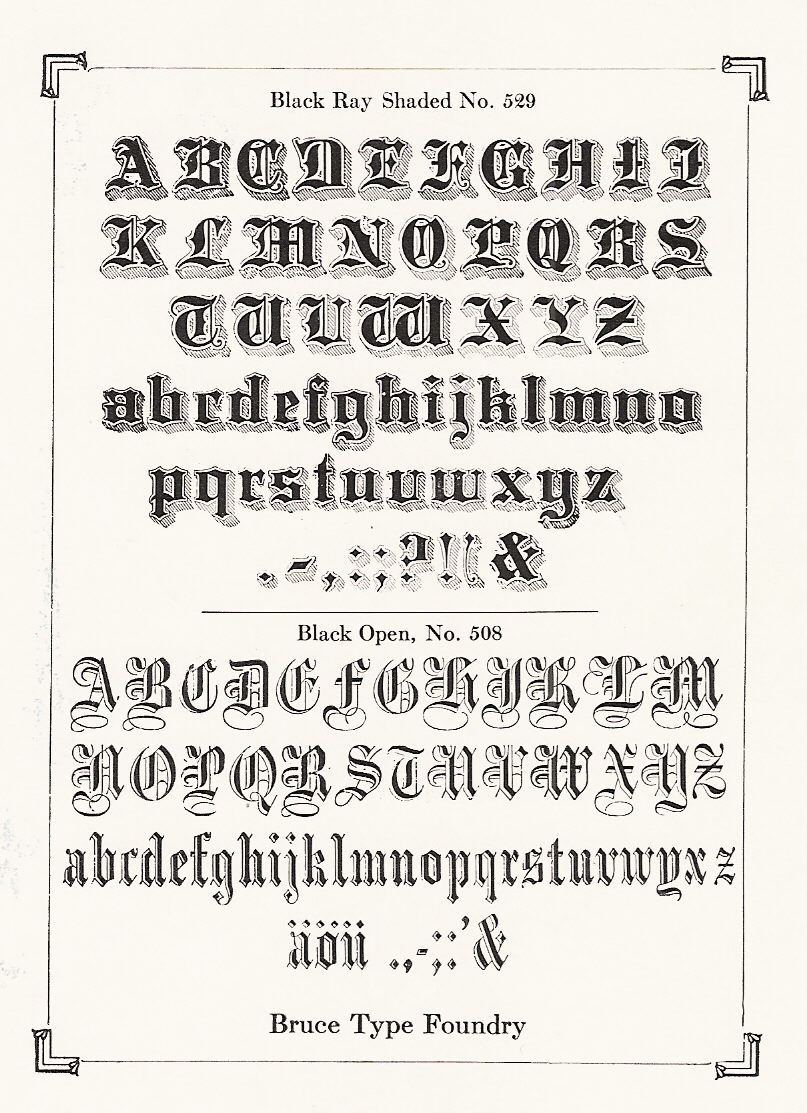 Black Ray Shaded No. 529
ABCDEFGHIJ
KLMNOPQRS
TUVWXYZ
abcdefghijklmno
pqrstuvwxyz
.-,:;?!'&
Black Open, No. 508
ABCDEFGHIKLM
NOPQRSTUVWXYZ
abcdefghijklmnopqrstuvwyxz
äöü .,-;:'&
Bruce Type Foundry